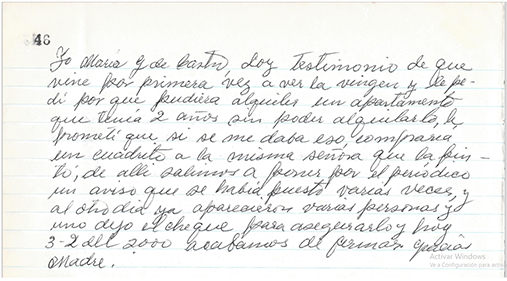 46
Yo María G de Castro, doy testimonio de que
vine por primera vez a ver la vingen y le pe-
di por que pudiera alquilar un apartamento
que tenía 2 años sin poder alquilarlo, le
prometí que si se me daba eso, compraría
un cuadrito a la misma señora que la pin-
tó, de allí salimos a poner por el periódico
un aviso que se había puesto varias veces, y
al otro día ya aparecieron varias personas y
uno dejo el cheque para asegurarlo y hoy
3-2 del 2000 acabamos de firmar, gracias
Madre.
Activar Windows
Ve a Configuración para activ